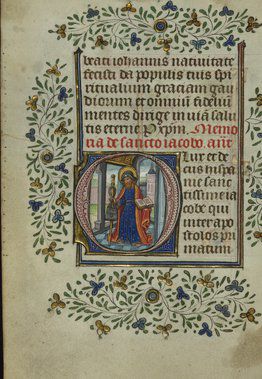 beati iohannis natiuitate
fecisti da populis tuis spi
ritualium graciam gau
diorum et omniū fideliū
mentes dirige in uiā salu
tis eterne P xpm. Memo
ria de sancto iacobo. ant
Lux et de
cus hyspa
nie sanc
tissime ia
cobe qui
inter apo
stolos pri
matum